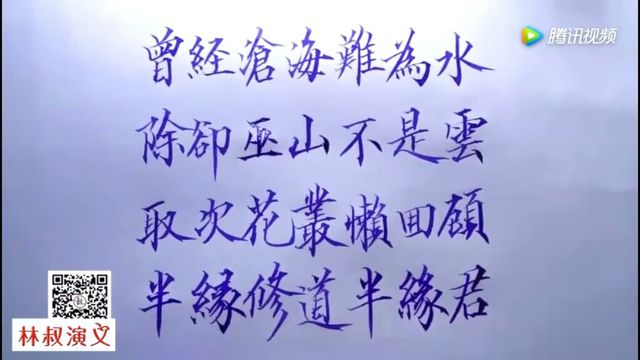 腾讯视频
曾経滄海難為水
除卻巫山不是雲
取次花叢懶回顧
半縁修道半緣君
林叔演文